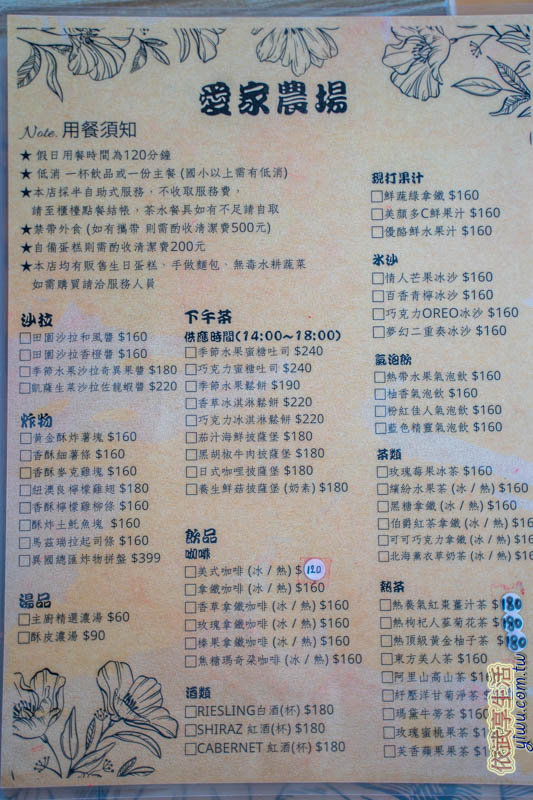 愛家農場
Note. 用餐須知
★ 假日用餐時間為120分鐘
★ 低消 一杯飲品或一份主餐 (國小以上需有低消)
★本店採半自助式服務，不收取服務費，
請至櫃檯點餐結帳，茶水餐具如有不足請自取
★禁帶外食 (如有攜帶 則需酌收清潔費500元)
★自備蛋糕 則需酌收清潔費200元
★本店均有販售生日蛋糕、手做麵包、無毒水耕蔬菜
如需購買請洽服務人員
沙拉
□田園沙拉和風醬 $160
□田園沙拉香橙醬 $160
□季節水果沙拉奇異果醬 $180
□凱薩生菜沙拉佐龍蝦醬 $220
炸物
□黃金酥炸薯塊 $160
□香酥細薯條 $160
□香酥麥克雞塊 $160
□紐澳良檸檬雞翅 $180
□香酥檸檬雞柳條 $160
□酥炸土魠魚塊 $160
□馬茲瑞拉起司條 $160
□異國總匯炸物拼盤 $399
湯品
□主廚精選濃湯 $60
□酥皮濃湯 $90
下午茶
供應時間(14:00~18:00)
□季節水果蜜糖吐司 $240
□巧克力蜜糖吐司 $240
□季節水果鬆餅 $190
□香草冰淇淋鬆餅 $220
□巧克力冰淇淋鬆餅 $220
□茄汁海鮮披薩堡 $180
□黑胡椒牛肉披薩堡 $180
□日式咖哩披薩堡 $180
□養生鮮菇披薩堡 (奶素) $180
飲品
咖啡
□美式咖啡 (冰 / 熱) $120
□拿鐵咖啡 (冰 / 熱) $160
□香草拿鐵咖啡 (冰 / 熱) $160
□玫瑰拿鐵咖啡 (冰 / 熱) $160
□榛果拿鐵咖啡 (冰 / 熱) $160
□焦糖瑪奇朵咖啡 (冰 / 熱) $160
酒類
□RIESLING白酒(杯) $180
□SHIRAZ 紅酒(杯) $180
□CABERNET 紅酒(杯) $180
現打果汁
□鮮蔬綠拿鐵 $160
□美顏多C鮮果汁 $160
□優酪鮮水果汁 $160
冰沙
□情人芒果冰沙 $160
□百香青檸冰沙 $160
□巧克力OREO冰沙 $160
□夢幻二重奏冰沙 $160
氣泡飲
□熱帶水果氣泡飲 $160
□柚香氣泡飲 $160
□粉紅佳人氣泡飲 $160
□藍色精靈氣泡飲 $160
茶類
□玫瑰莓果冰茶 $160
□繽紛水果茶 (冰 / 熱) $160
□黑糖拿鐵 (冰 / 熱) $160
□伯爵紅茶拿鐵 (冰 / 熱) $16
□可可巧克力拿鐵 (冰 / 熱) $16
□北海薰衣草奶茶 (冰 / 熱) $16
熱茶
□熱養氣紅棗薑汁茶 $180
□熱枸杞人蔘菊花茶 $180
□熱頂級黃金柚子茶 $180
□東方美人茶 $160
□阿里山高山茶 $
□紓壓洋甘菊淨茶 $
□瑪黛牛蒡茶 $160
□玫瑰蜜桃果茶 $
□芙香蘋果果茶 $
依武享生活
yiwu.com.tw